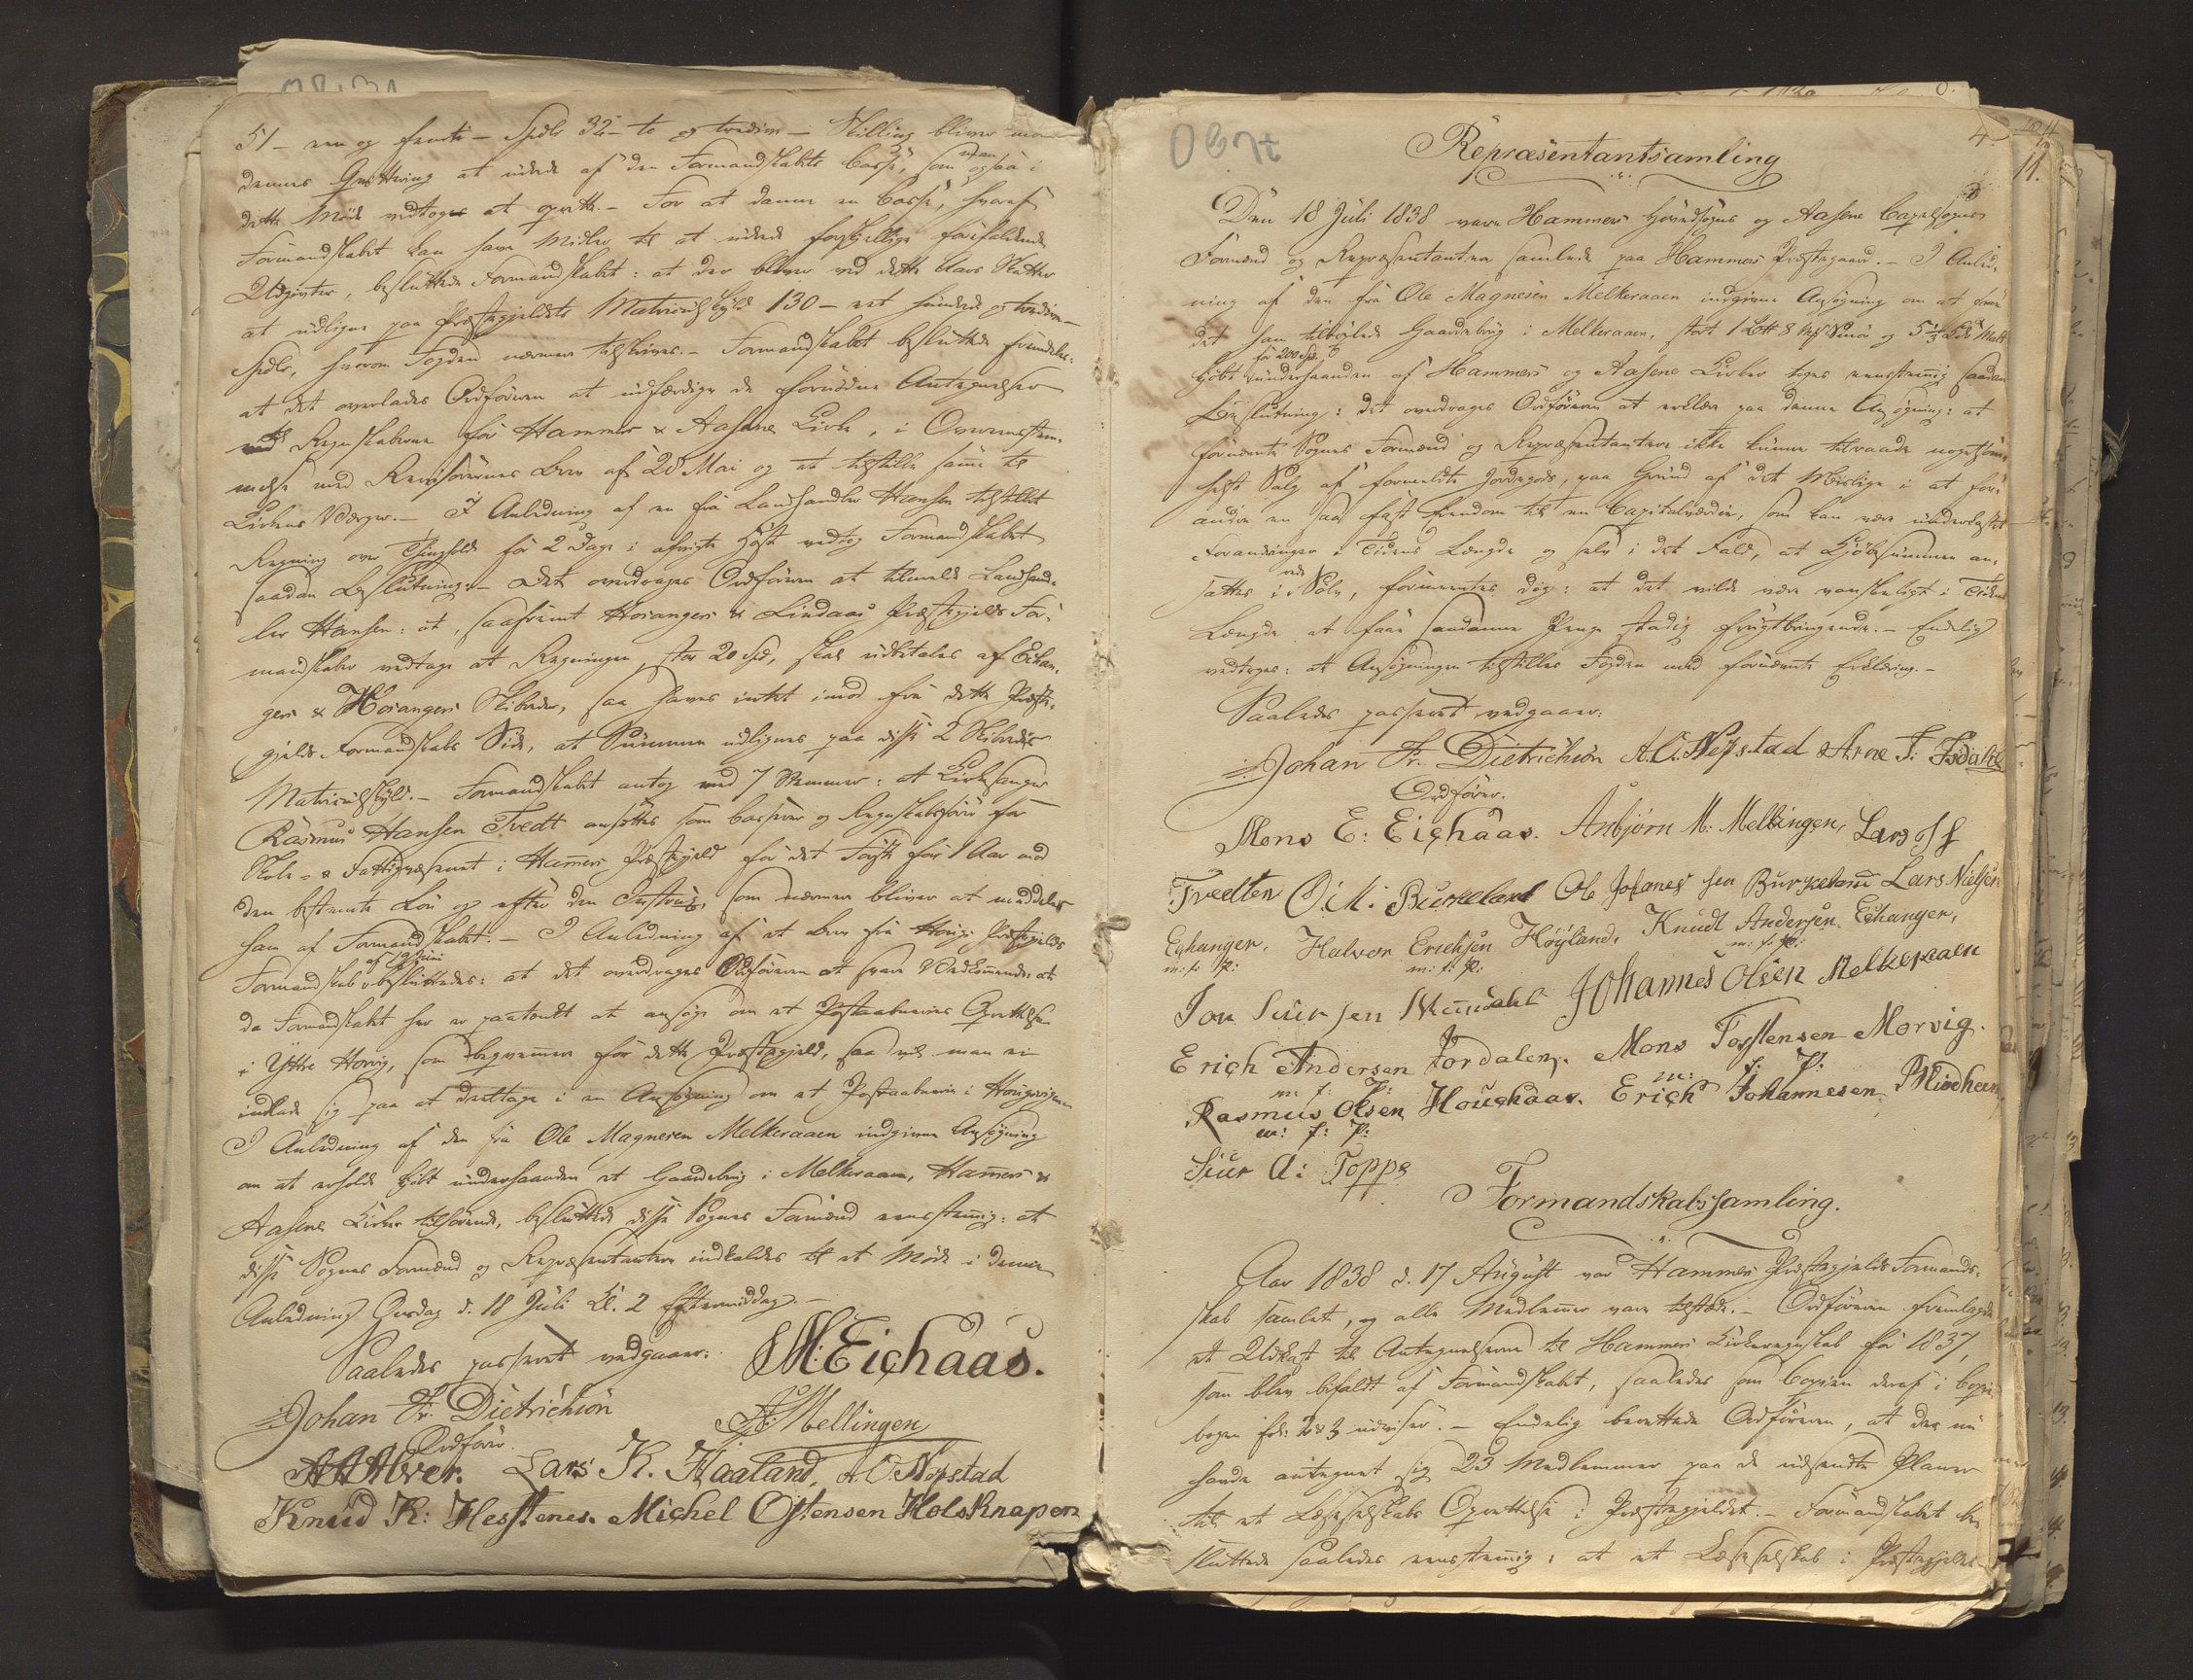 51 – een og femti – Spdlr 32 – to og tredive – Skilling bliver mod
dennes Qvittering at udrede af den Formandskabets Casse, som man ogsaa i
dette Møde vedtoges at oprette. – For at danne en Casse, hvoraf
Formandskabet kan have Midler til at udrede forskjellige forefaldende
Udgivter, besluttede Formandskabet: at der bliver ved dette Aars Skatter
at udligne paa Præstegjeldets Matriculskyld 130 – eet hundrede og tredive –
Spdlr, hvorom Fogden nærmere tilskrives. – Formandskabet besluttede fremdeles:
at det overlades Ordføreren at udfærdige de fornødne Antegnelser
ved Regnskaberne for Hammers & Aasene Kirke, i Overeensstem-
melse med Revisorernes Brev af 28 Mai og at tilstille samme til
Kirkens Værger. – I Anledning af en fra Landhandler Hansen tilstillet
Regning over Thinghold for 2 Dage i afvigte Høst vedtog Formandskabet
saadan Beslutning: – Det overdrages Ordføreren at tilmelde Landhand-
ler Hansen: at, saafremt Hosangers & Lindaas Præstegjelds For-
mandskaber vedtage at Regningen, stor 20 Spd, skal udbetales af Eikan-
gers & Hosangers Skibreder, saa haves intet imod fra dette Præste-
gjelds Formandskabs Side, at Summen udlignes paa disse 2 Skibreders
Matriculskyld. – Formandskabet antog med 7 Stemmer: at Kirkesanger
Rasmus Hansen Tvedt ansættes som Casserer og Regnskabsfører for
Skole- & Fattigvæsenet i Hammers Præstegjeld for det Første for 1 Aar mod
den bestemte Løn og efter den Instrux, som nærmere bliver at meddele
ham af Formandskabet. – I Anledning af et Brev fra Hougs Præstegjelds
Formandskab af 19 Juni besluttedes: at det overdrages Ordføreren at svare Vedkommende: at
da Formandskabet her er paatænkt at ansøge om et Postaabneries Oprettelse
i Yttre Horvig, som beqvemmere for dette Præstegjeld, saa vil man ei
indlade sig paa at deeltage i en Ansøgning om et Postaabneri i
I Anledning af den fra Ole Magnesen Melkeraaen indgivne Ansøgning
om at erholde kjøbt underhaanden et Gaardebrug i Melkeraaen, Hammers &
Aasene Kirker tilhørende, besluttede disse Sognes Formænd eenstemmig: at
disse Sognes Formænd og Repræsentantere indkaldes til et Møde i denne
Anledning Onsdag d. 18 Juli Kl. 2 Eftermiddag. –
Saaledes passeret vedgaaer:
M: Eichaas.
Johan Fr. Dietrichson
Ordfører.
A: Mellingen
A A Alver. Lars K. Haaland, A O. Nepstad
Knud K: Hesstenes. Michel Ostensen Holsknapen
4.
Repræsentantsamling
Den 18 Juli 1838 vare Hammers Hovedsogns og Aasene Capelsogns
Formænd og Repræsentantere samlede paa Hammers Præstegaard. – I Anled-
ning af den fra Ole Magnesen Melkeraaen indgivne Ansøgning om at faae
det ham tilbøxlede Gaardebrug i Melkeraaen, stort 1 Løb 8 Mk Smør og 5⅓ Malt
kjøbt for 200 Spd. underhaanden af Hammers og Aasene Kirker toges eenstemmig saadan
Beslutning: det overdrages Ordføreren at erklære paa denne Ansøgning: at
fornævnte Sognes Formænd og Repræsentantere ikke kunne tilraade nogetsom-
helst Salg af formeldte Jordegods, paa Grund af det Mislige i at for-
andre en saa fast Eiendom til en Capitalværdie, som kan være underkastet
Forandringer i Tidens Længde og selv i det Fald, at Kjøbesummen an-
sattes i ved Sølv, formeentes dog: at det vilde være vanskeligt i Tidens
Længde at faae saadanne Penge stadig frugtbringende. – Endelig
vedtoges: at Ansøgningen tilstilles Fogden med fornævnte Erklæring. –
Saaledes passeret vedgaaer:
Johan Fr. Dietrichson A. O. Nepstad Arne J: Isdahl
Ordfører.
Mons E: Eichaas. Anbjørn M: Mellingen, Lars
Tvedten O: M: Burkeland Ole Johanes sen Burkeland Lars Nielsen
Echanger. Halvor Erichsen Høyland, Knudt Andersen Echanger,
m: f: P: m: f: P: m: f: P:
Jon Siursen Johannes Olsen Melkeraaen
Erich Andersen Jordalen. Mons Torstensen Morvig.
m: f: P: m: f: P:
Rasmus Olsen Houghaas. Erich Johannesen
m: f: P:
Siur A: Toppe
Formandskabssamling.
Aar 1838 d. 17 August var Hammers Præstegjelds Formand-
skab samlet, og alle Medlemmer vare tilstede. – Ordføreren fremlagde
et Udkast til Antegnelserne til Hammers Kirkeregnskab for 1837,
som blev bifaldt af Formandskabet, saaledes som Copien deraf i Copie-
bogen fol: 2 & 3 udviser. – Endelig berettede Ordføreren, at der nu
havde antegnet sig 23 Medlemmer paa de udsendte Planer
til et Læseselskabs Oprettelse i Præstegjeldet. – Formandskabet be-
sluttede saaledes eenstemmig: at et Læseselskab i Præstegjeldet
11.